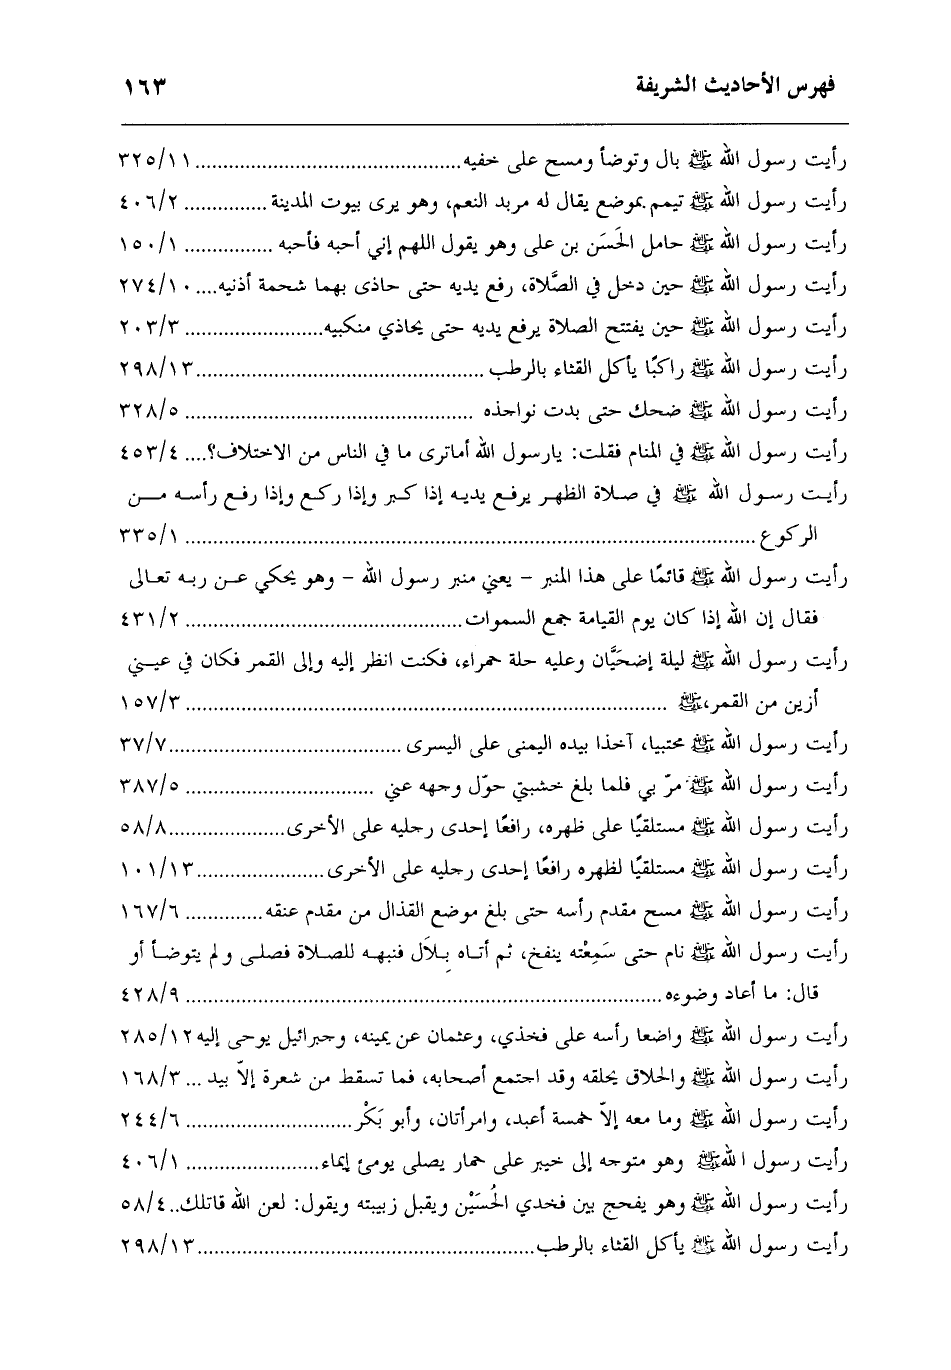 فهرس الأحاديث الشريفة ١٦٣
رأيت رسول الله ﷺ بال وتوضأ ومسح على خفيه................................................ ٣٢٥/١١
رأيت رسول الله ﷺ تيمم بموضع يقال له مربد النعم، وهو يرى بيوت المدينة ............... ٤٠٦/٢
رأيت رسول الله ﷺ حامل الحَسَن بن على وهو يقول اللهم إني أحبه فأحبه ................ ١٥٠/١
رأيت رسول الله ﷺ حين دخل في الصَّلاة، رفع يديه حتى حاذى بهما شحمة أذنيه.... ٢٧٤/١٠
رأيت رسول الله ﷺ حين يفتتح الصلاة يرفع يديه حتى يحاذي منكبيه......................... ٢٠٣/٣
رأيت رسول الله ﷺ راكبًا يأكل القثاء بالرطب .................................................... ٢٩٨/١٣
رأيت رسول الله ﷺ ضحك حتى بدت نواجذه .................................................... ٣٢٨/٥
رأيت رسول الله ﷺ في المنام فقلت: يارسول الله أماترى ما في الناس من الاختلاف؟.... ٤٥٣/٤
رأيت رسول الله ﷺ في صلاة الظهر يرفع يديه إذا كبر وإذا ركع وإذا رفع رأسه من
الركوع ....................................................................................................... ٣٣٥/١
رأيت رسول الله ﷺ قائمًا على هذا المنبر – يعني منبر رسول الله – وهو يحكي عن ربه تعالى
فقال إن الله إذا كان يوم القيامة جمع السموات.................................................. ٤٣١/٢
رأيت رسول الله ﷺ ليلة إضحَيَّان وعليه حلة حمراء، فكنت انظر إليه وإلى القمر فكان في عيني
أزين من القمر،ﷺ ....................................................................................... ١٥٧/٣
رأيت رسول الله ﷺ محتبيا، آخذا بيده اليمنى على اليسرى.......................................... ٣٧/٧
رأيت رسول الله ﷺ مرّ بي فلما بلغ خشبتي حوّل وجهه عني .................................. ٣٨٧/٥
رأيت رسول الله ﷺ مستلقيًا على ظهره، رافعًا إحدى رجليه على الأخرى..................... ٥٨/٨
رأيت رسول الله ﷺ مستلقيًا لظهره رافعًا إحدى رجليه على الأخرى....................... ١٠١/١٣
رأيت رسول الله ﷺ مسح مقدم رأسه حتى بلغ موضع القذال من مقدم عنقه.............. ١٦٧/٦
رأيت رسول الله ﷺ نام حتى سَمِعْته ينفخ، ثم أتاه بِلاَل فنبهه للصلاة فصلى ولم يتوضأ أو
قال: ما أعاد وضوءه ...................................................................................... ٤٢٨/٩
رأيت رسول الله ﷺ واضعا رأسه على فخذي، وعثمان عن يمينه، وجبرائيل يوحى إليه ٢٨٥/١٢
رأيت رسول الله ﷺ والحلاق يحلقه وقد اجتمع أصحابه، فما تسقط من شعرة إلاّ بيد ... ١٦٨/٣
رأيت رسول الله ﷺ وما معه إلاّ خمسة أعبد، وامرأتان، وأبو بَكْر.............................. ٢٤٤/٦
رأيت رسول اللهﷺ وهو متوجه إلى خيبر على حمار يصلى يومئ إيماء........................ ٤٠٦/١
رأيت رسول الله ﷺ وهو يفحج بين فخدي الحُسَيْن ويقبل زبيبته ويقول: لعن الله قاتلك.. ٥٨/٤
رأيت رسول الله ﷺ يأكل القثاء بالرطب............................................................. ٢٩٨/١٣